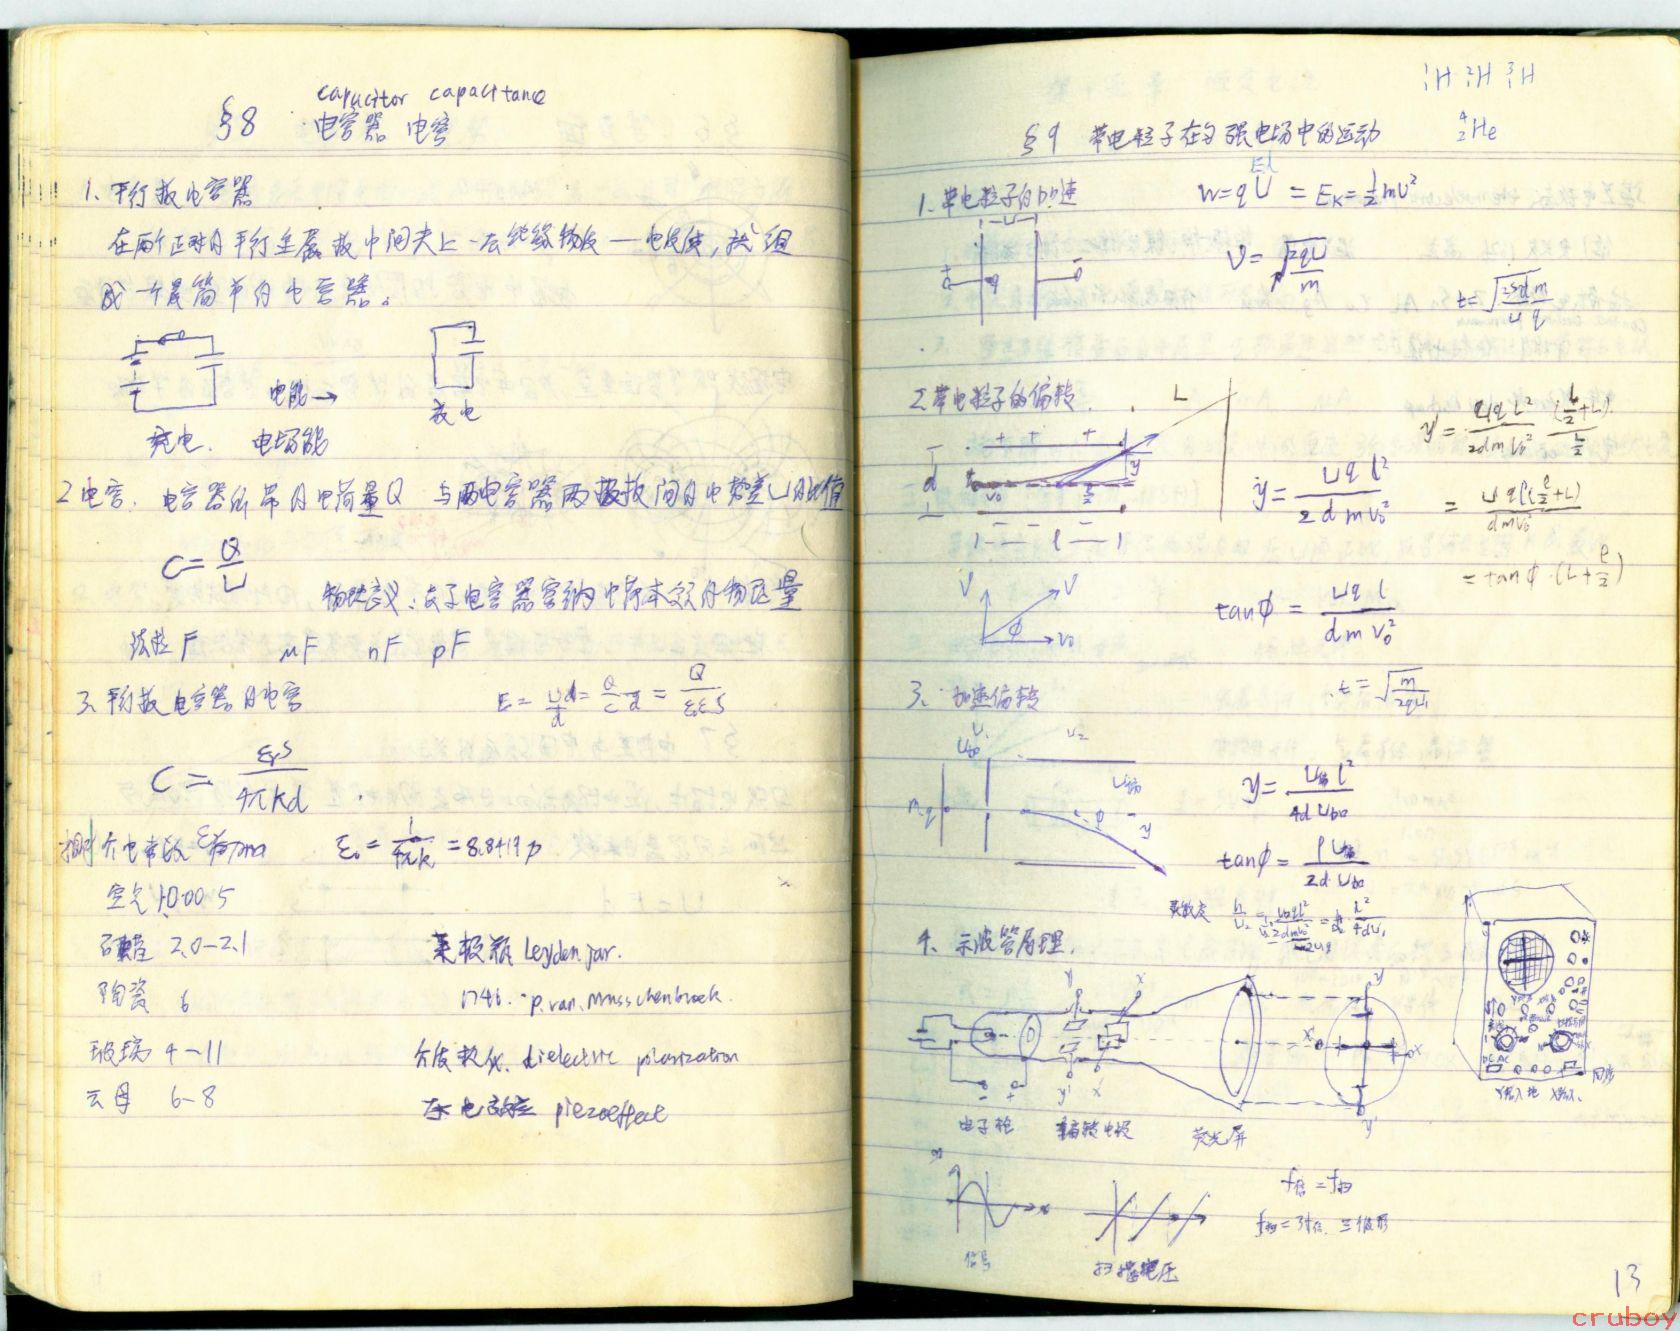 capacitor capacitance
§8 电容器 电容
1、平行板电容器
在两个正对的平行金属板中间夹上一层绝缘物质——电介质,就组
成一个最简单的电容器。
电能→
充电. 电场能
放电
2 电容: 电容器所带的电荷量Q 与两电容器两极板间的电势差U的比值
C=Q/U
物理意义:表示电容器容纳电荷本领的物理量
法拉F μF nF pF
3、平行板电容器的电容
C = εrS/4πkd
相对介电常数
ε0 = 1/4πk = 8.8419p
空气 1.0005
石蜡 2.0-2.1
陶瓷 6
玻璃 4-11
云母 6-8
莱顿瓶 Leyden jar.
1746. p.van.Musschenbroek.
介质极化. dielectric polarization
压电效应 piezoeffect
¹₁H ²₁H ³₁H
⁴₂He
§9 带电粒子在匀强电场中的运动
1、带电粒子的加速
W=qU = EK=½mv²
Ed
v=√(2qU/m)
2、带电粒子的偏转.
L
y'= Uql²/2dmv0² · (l/2+L)/(l/2)
y= Uql²/2dmv0²
= Uql(l/2+L)/dmv0²
= tanφ·(L+l/2)
tanφ = Uql/dmv0²
3、加速偏转
t=√(m/2qU1)
U2
U偏
m,q
y= U偏l²/4dU加
tanφ= lU偏/2dU加
灵敏度
4、示波管原理.
电子枪
偏转电极
荧光屏
DC AC
Y输入 地 X输入
同步
信号
扫描电压
f信=f扫
三个波形
13
cruboy